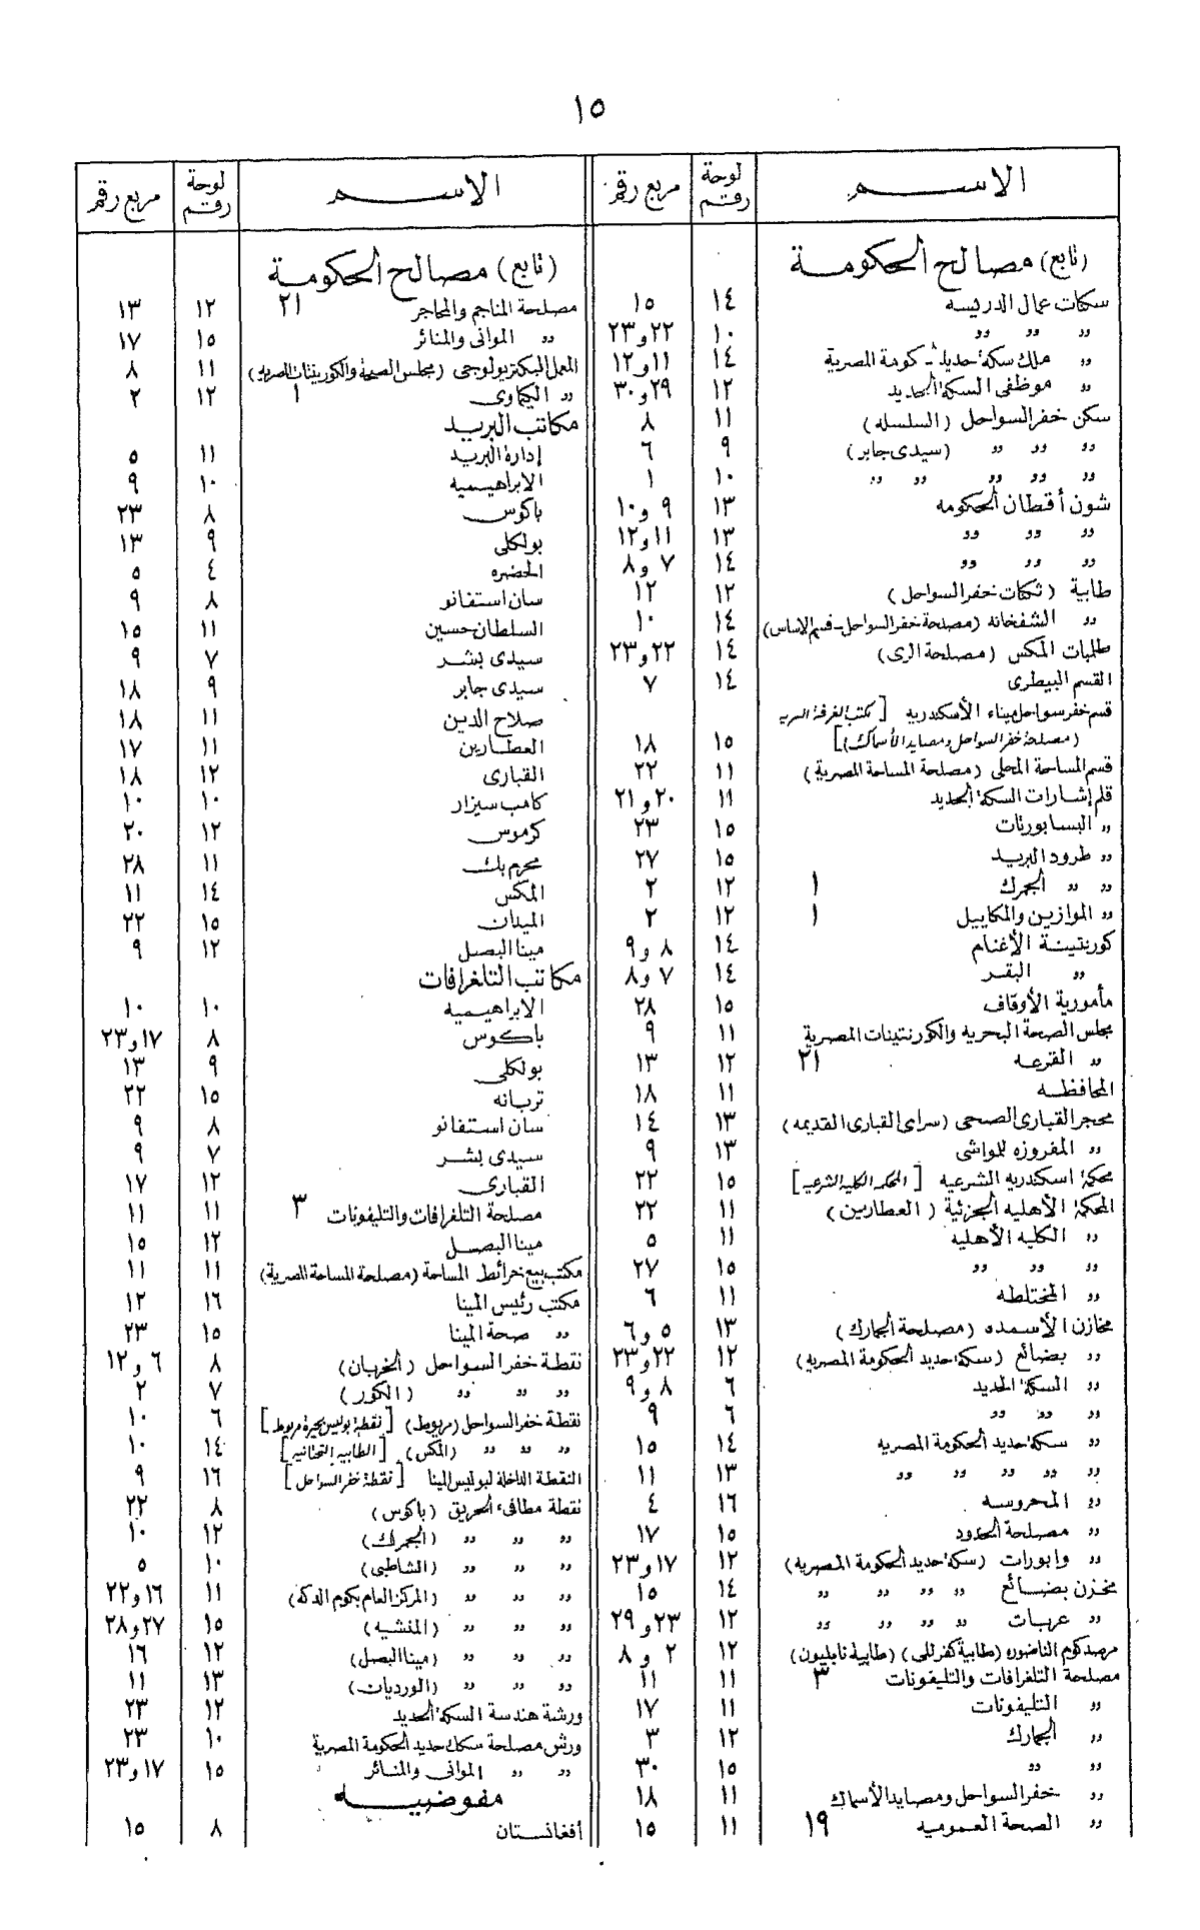 ١٥
الاسم لوحة رقم مربع رقم
(تابع) مصالح الحكومة
سكات عمال الدريسه ١٤ ١٥
" " " ١٠ ٢٢ و٢٣
" ملك سكة حديد الحكومة المصرية ١٤ ١١ و١٢
" موظفى السكة الحديد ١٢ ٢٩ و٣٠
سكن خفر السواحل (السلسله) ١١ ٨
" " " (سيدى جابر) ٩ ٦
" " " " " ١٠ ١
شون أقطان الحكومه ١٣ ٩ و١٠
" " " ١٣ ١١ و١٢
" " " ١٤ ٧ و٨
طابية (ثكنات خفر السواحل) ١٢ ١٢
" الشفخانه (مصلحة خفر السواحل - قسم الاساس) ١٤ ١٠
طلمبات المكس (مصلحة الرى) ١٤ ٢٢ و٢٣
القسم البيطرى ١٤ ٧
قسم خفر سواحل ميناء الأسكندريه [مكتب الغرفة السريه
(مصلحة خفر السواحل ومصايد الأسماك)] ١٥ ١٨
قسم المساحة المحلى (مصلحة المساحة المصرية) ١١ ٢٢
قلم إشارات السكة الحديد ١١ ٢٠ و٢١
" البسابورتات ١٥ ٢٣
" طرود البريد ١٥ ٢٧
" " الجمرك ١ ١٢ ٢
" الموازين والمكاييل ١ ١٢ ٢
كورنتينة الأغنام ١٤ ٨ و٩
" البقر ١٤ ٧ و٨
مأمورية الأوقاف ١٥ ٢٨
مجلس الصحة البحريه والكورنتينات المصرية ١١ ٩
" القرعه ٢١ ١٢ ١٣
المحافظه ١١ ١٨
محجر القبارى الصحى (سراى القبارى القديمه) ١٣ ١٤
" المفروزه للمواشى ١٣ ٩
محكمة اسكندريه الشرعيه [المحكمه الكلية الشرعيه] ١٥ ٢٢
المحكمة الأهليه الجزئية (العطارين) ١١ ٢٢
" الكليه الأهليه ١١ ٥
" " " ١٥ ٢٧
" المختلطه ١١ ٦
مخازن الأسمده (مصلحة الجمارك) ١٣ ٥ و٦
" بضائع (سكة حديد الحكومة المصريه) ١٢ ٢٢ و٢٣
" السكة الحديد ٦ ٨ و٩
" " " ٦ ٩
" سكة حديد الحكومة المصريه ١٤ ١٥
" " " " " ١٣ ١١
" المحروسه ١٦ ٤
" مصلحة الحدود ١٥ ١٧
" وابورات (سكة حديد الحكومة المصريه) ١٢ ١٧ و٢٣
مخزن بضائع " " " " ١٤ ١٥
" عربات " " " " ١٢ ٢٣ و٢٩
مرصد كوم الناضوره (طابية كفرللى) (طابية نابليون) ١٢ ٢ و ٨
مصلحة التلغرافات والتليفونات ٣ ١١ ١١
" التليفونات ١١ ١٧
" الجمارك ١٢ ٣
" " ١٥ ٣٠
" خفر السواحل ومصايد الأسماك ١١ ١٨
" الصحة العموميه ١٩ ١١ ١٥
الاسم لوحة رقم مربع رقم
(تابع) مصالح الحكومة
مصلحة المناجم والمحاجر ٢١ ١٢ ١٣
" الموانى والمنائر ١٥ ١٧
المعمل البكتريولوجى (مجلس الصحة والكورنتينات المصريه) ١١ ٨
" الكيماوى ١ ١٢ ٢
مكاتب البريد
إدارة البريد ١١ ٥
الابراهيميه ١٠ ٩
باكوس ٨ ٢٣
بولكلى ٩ ١٣
الحضره ٤ ٥
سان استفانو ٨ ٩
السلطان حسين ١١ ١٥
سيدى بشر ٧ ٩
سيدى جابر ٩ ١٨
صلاح الدين ١١ ١٨
العطارين ١١ ١٧
القبارى ١٢ ١٨
كامب سيزار ١٠ ١٠
كرموس ١٢ ٢٠
محرم بك ١١ ٢٨
المكس ١٤ ١١
الميدان ١٥ ٢٢
مينا البصل ١٢ ٩
مكاتب التلغرافات
الابراهيميه ١٠ ١٠
باكوس ٨ ١٧ و٢٣
بولكلى ٩ ١٣
تربانه ١٥ ٢٢
سان استفانو ٨ ٩
سيدى بشر ٧ ٩
القبارى ١٢ ١٧
مصلحة التلغرافات والتليفونات ٣ ١١ ١١
مينا البصل ١٢ ١٥
مكتب بيع خرائط المساحة (مصلحة المساحة المصرية) ١١ ١١
مكتب رئيس المينا ١٦ ١٢
" صحة المينا ١٥ ٢٣
نقطة خفر السواحل (الخربان) ٨ ٦ و١٢
" " " (الكور) ٧ ٢
نقطة خفر السواحل (مريوط) [نقطة بوليس بحيرة مريوط] ٦ ١٠
" " " (المكس) [الطابيه التحتانيه] ١٤ ١٠
النقطة الداخلة لبوليس المينا [نقطة خفر السواحل] ١٦ ٩
نقطة مطافىء الحريق (باكوس) ٨ ٢٢
" " " (الجمرك) ١٢ ١٠
" " " (الشاطبى) ١٠ ٥
" " " (المركز العام بكوم الدكة) ١١ ١٦ و٢٢
" " " (المنشيه) ١٥ ٢٧ و٢٨
" " " (مينا البصل) ١٢ ١٦
" " " (الورديات) ١٣ ١١
ورشة هندسة السكة الحديد ١٢ ٢٣
ورش مصلحة سكك حديد الحكومة المصرية ١٠ ٢٣
" " الموانى والمنائر ١٥ ١٧ و٢٣
مفوضيه
أفغانستان ٨ ١٥